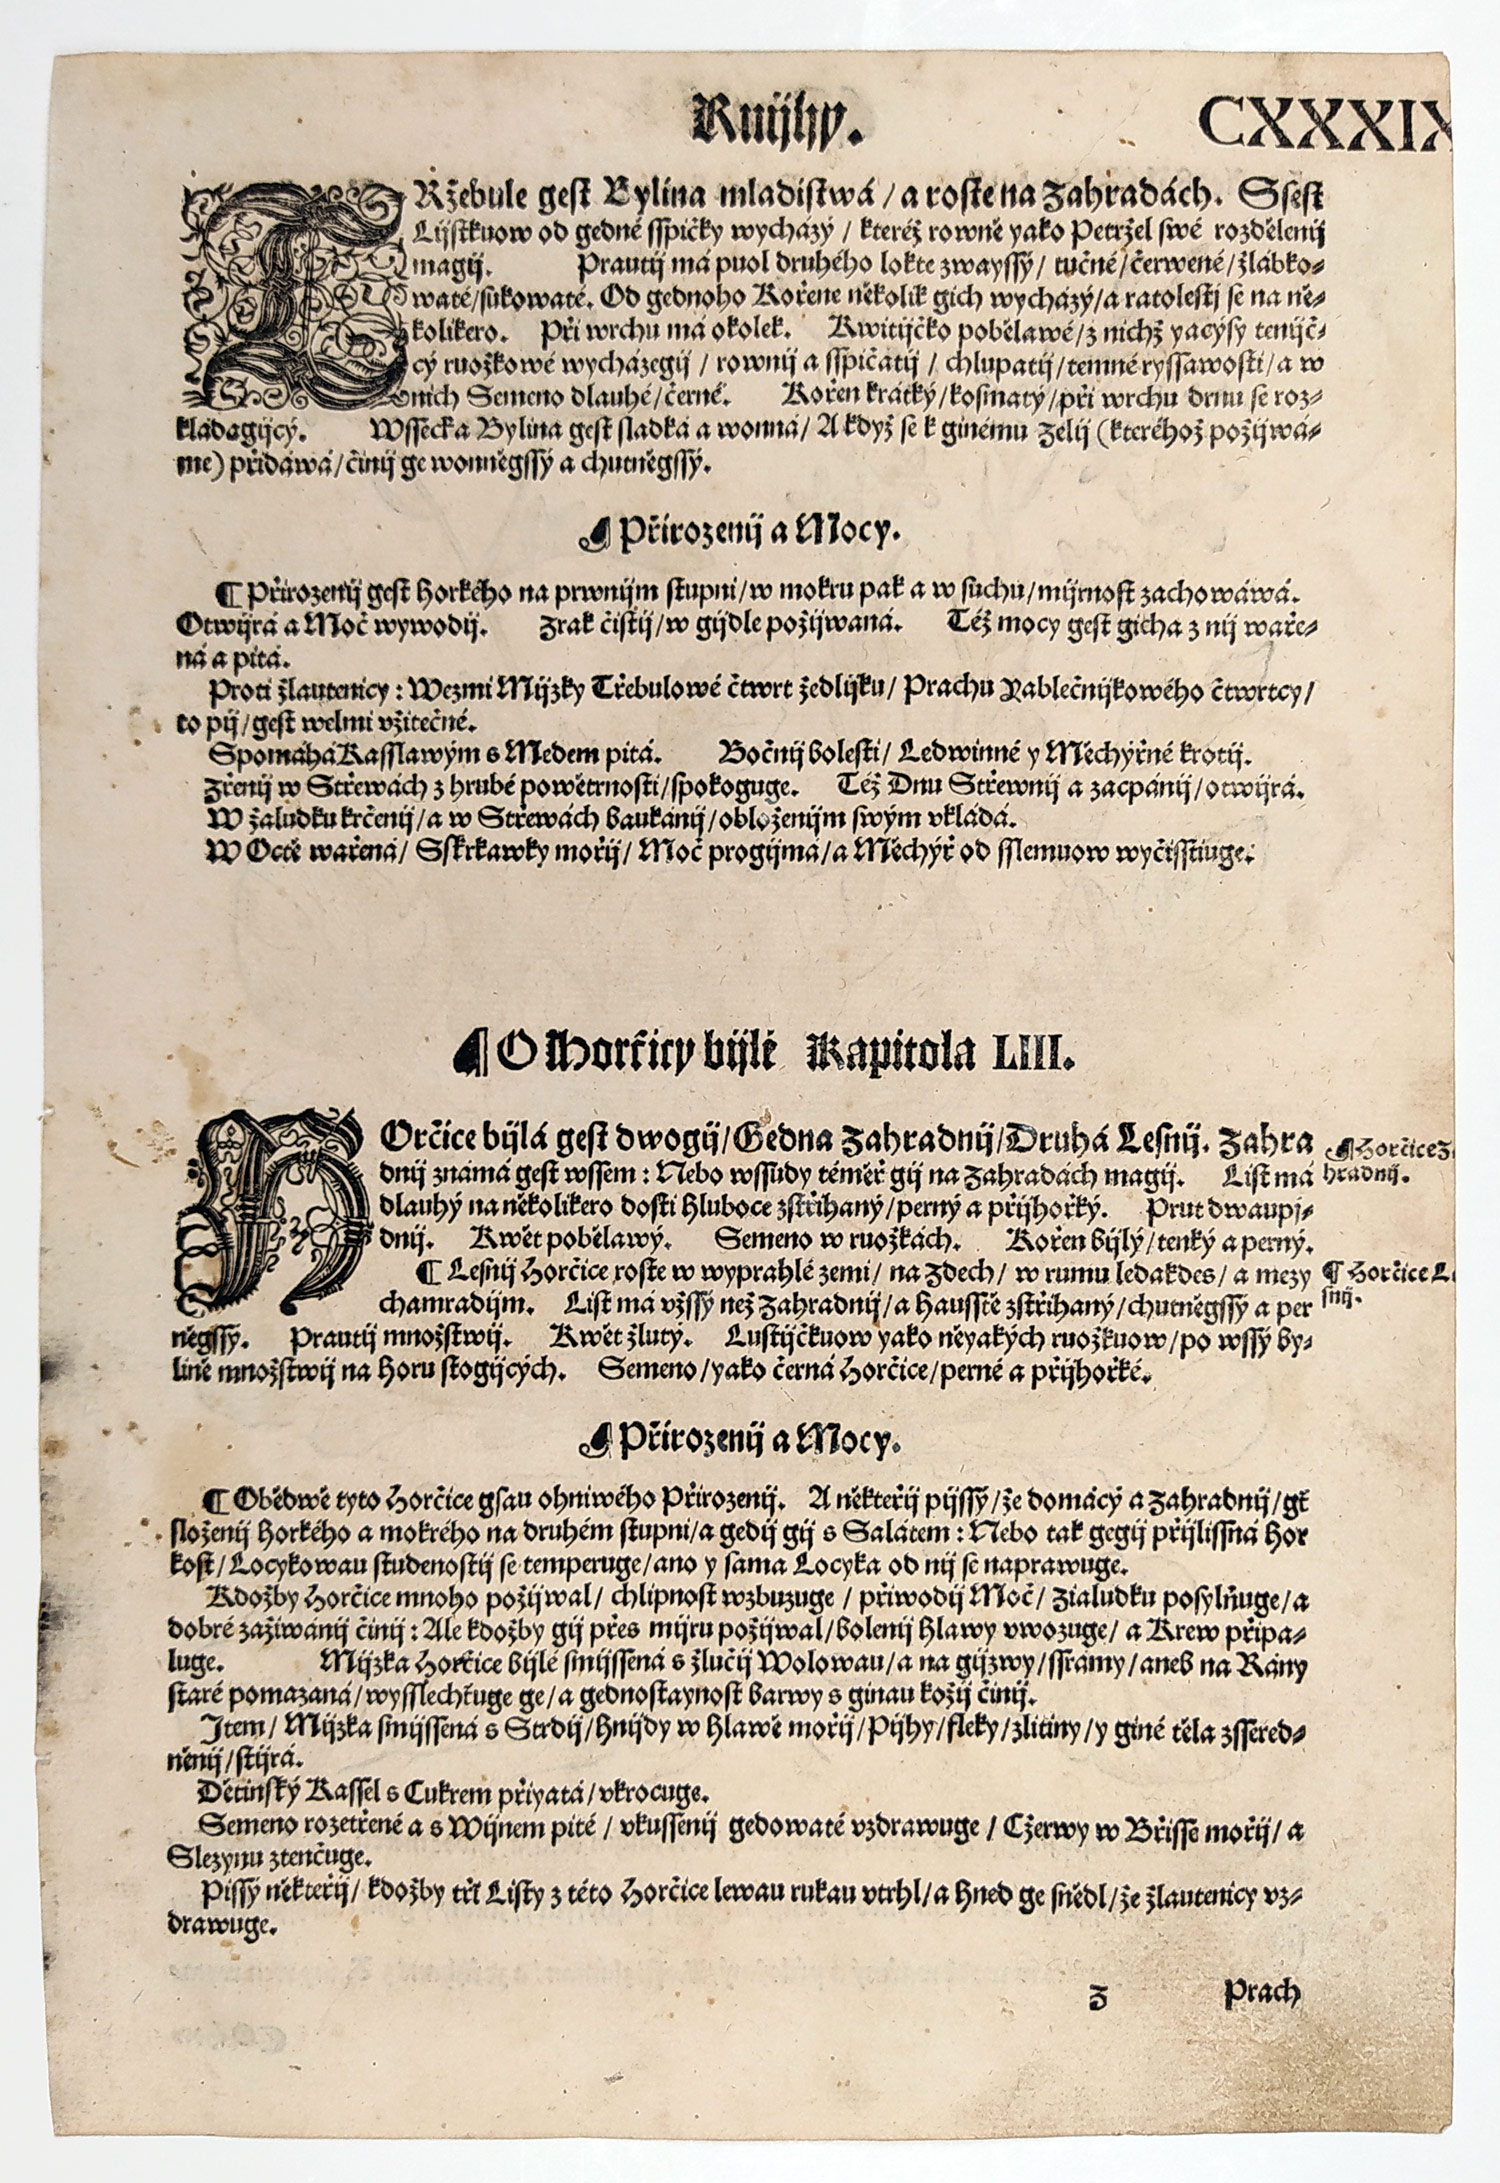 Knijhy.
CXXXIX
TRžebule gest Bylina mladistwá / a roste na Zahradách. Ssest
Lijstkuow od gedné sspičky wycházý / kteréž rowně yako Petržel swé rozdělenij
magij. Prautij má puol druhého lokte zwayssý / tučné / červené / žlábko-
waté / sukowaté. Od gednoho Kořene několik gich wycházý / a ratolestj se na ně-
kolikero. Při wrchu má okolek. Kwitijčko pobělawé / z nichž yacýsy tenijč-
cý ruožkowé wycházegij / rownij a sspičatij / chlupatij / temné ryssawosti / a w
nich Semeno dlauhé / černé. Kořen krátký / kosmatý / při wrchu drnu se roz-
kládagijcý. Wssecka Bylina gest sladká a wonná / A když se k ginému Zelij (kteréhož požijwá-
me) přidáwá / činij ge wonněgssý a chutněgssý.
¶ Přirozenij a Mocy.
¶ Přirozenij gest Horkého na prwnijm stupni / w mokru pak a w suchu / mijrnost zachowáwá.
Otwijrá a Moč wywodij. Zrak čistij / w gijdle požijwaná. Též mocy gest gicha z nij waře-
ná a pitá.
Proti žlautenicy : Wezmi Mijzky Třebulowé čtwrt žedlijku / Prachu Yablečnijkowého čtwrtcy /
to pij / gest welmi vžitečné.
Spomáhá Kasslawým s Medem pitá. Bočnij bolesti / Ledwinné y Měchýřné krotij.
Zřenij w Střewách z hrubé powětrnosti / spokoguge. Též Dnu Střewnij a zacpánij / otwijrá.
W žaludku krčenij / a w Střewách baukánij / obloženijm swým vkládá.
W Octě wařená / Sskrkawky mořij / Moč progijmá / a Měchýř od sslemuow wyčisstiuge.
¶ O Horčicy bijlé Kapitola LIII.
HOrčice bijlá gest dwogij / Gedna Zahradnij / Druhá Lesnij. Zahra
dnij známá gest wssem : Nebo wssudy téměř gij na Zahradách magij. List má
dlauhý na několikero dosti hluboce zstřihaný / perný a přijhořký. Prut dwaupj-
dnij. Kwět pobělawý. Semeno w ruožkách. Kořen bijlý / tenký a perný.
¶ Horčice Z
hradnij.
¶ Lesnij Horčice roste w wyprahlé zemi / na Zdech / w rumu ledakdes / a mezy
chamradijm. List má vžssý než Zahradnij / a Hausstě zstřihaný / chutněgssý a per
něgssý. Prautij množstwij. Kwět žlutý. Lustijčkuow yako něyakých ruožkuow / po wssý by-
lině množstwij na Horu stogijcých. Semeno / yako černá Horčice / perné a přijhořké.
¶ Horčice Le
snij.
¶ Přirozenij a Mocy.
¶ Obědwě tyto Horčice gsau ohniwého Přirozenij. A někteřij pijssý / že domácý a Zahradnij / gt
složenij Horkého a mokrého na druhém stupni / a gedij gij s Salátem : Nebo tak gegij přijlissná Hor
kost / Locykowau studenostij se temperuge / ano y sama Locyka od nij se naprawuge.
Kdožby Horčice mnoho požijwal / chlipnost wzbuzuge / přiwodij Moč / Zialudku posylňuge / a
dobré zažiwánij činij : Ale kdožby gij přes mijru požijwal / bolenij Hlawy vwozuge / a Krew připa-
luge. Mijzka Horčice bijlé smijssená s žlučij Wolowau / a na gijzwy / ssrámy / aneb na Rány
staré pomazaná / wysslechťuge ge / a gednostaynost barwy s ginau kožij činij.
Item / Mijzka smijssená s Strdij / Hnijdy w Hlawě mořij / Pijhy / fleky / zlitiny / y giné těla zssered-
něnij / stijrá.
Dětinský Kassel s Cukrem přiyatá / vkrocuge.
Semeno rozetřené a s Wijnem pité / vkussenij gedowaté vzdrawuge / Cžerwy w Břisse mořij / a
Slezynu ztenčuge.
Pissý někteřij / kdožby tři Listy z této Horčice lewau rukau vtrhl / a Hned ge snědl / že žlautenicy vz-
drawuge.
Z
Prach